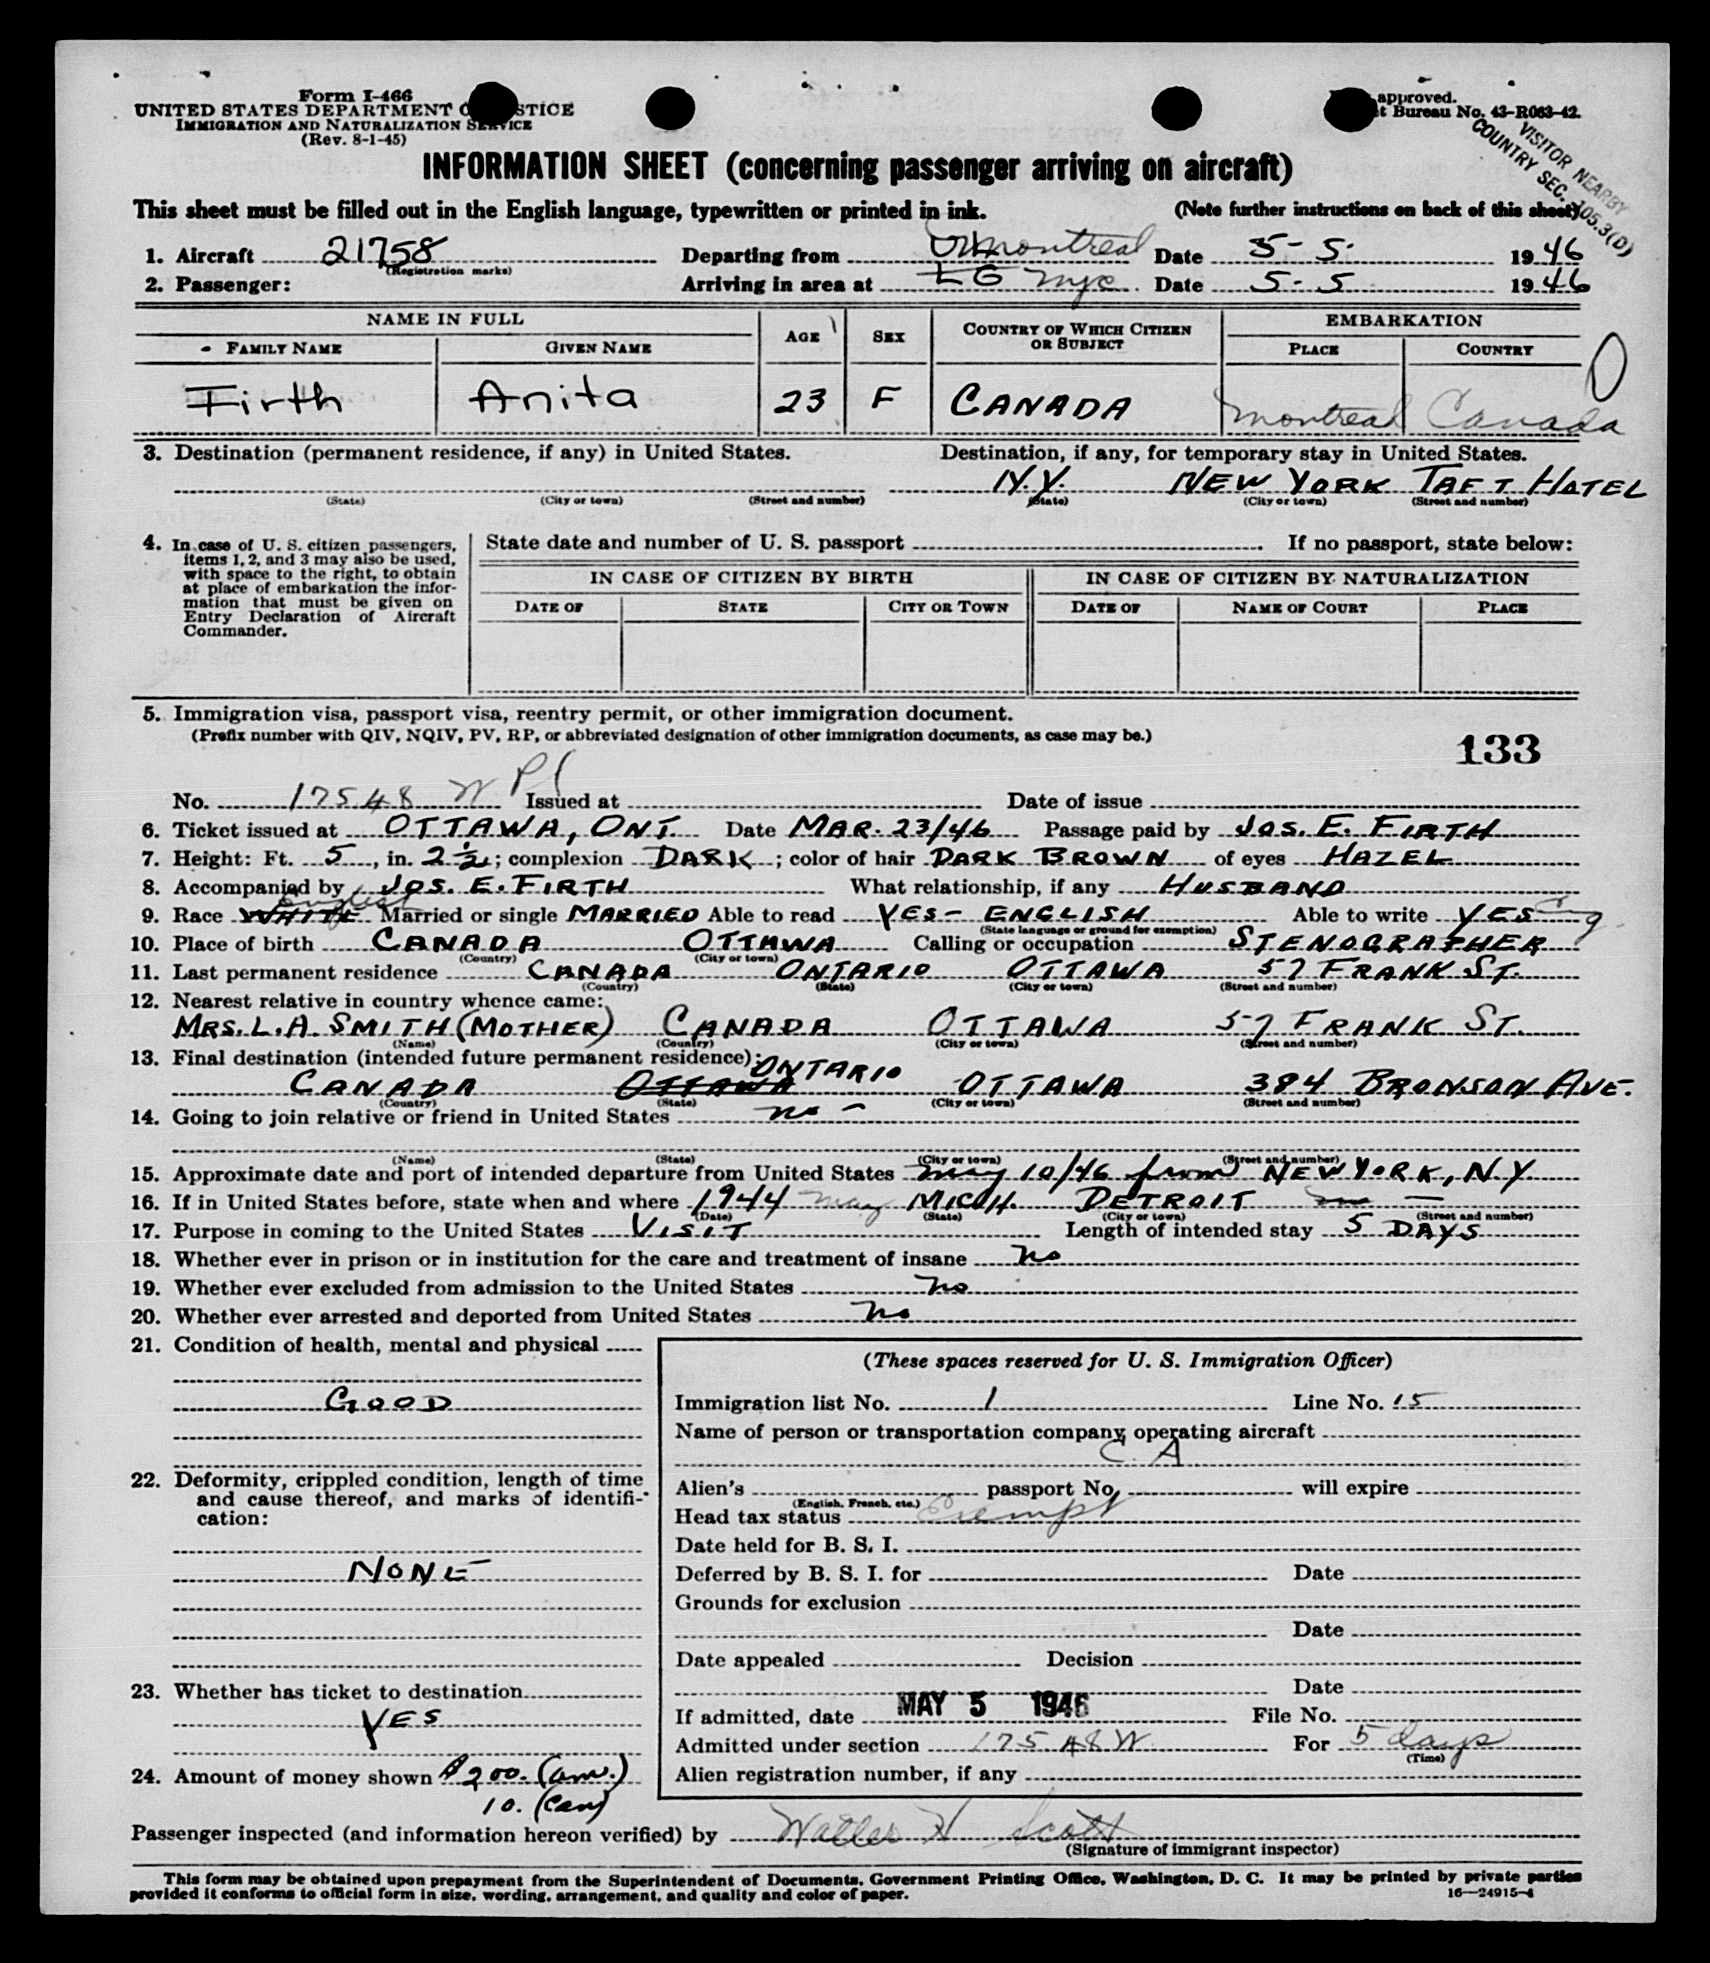 Form I-466
UNITED STATES DEPARTMENT OF JUSTICE
IMMIGRATION AND NATURALIZATION SERVICE
(Rev. 8-1-45)
approved.
t Bureau No. 43-R063-42.
VISITOR NEARBY
COUNTRY SEC. 105.3(D)
INFORMATION SHEET (concerning passenger arriving on aircraft)
This sheet must be filled out in the English language, typewritten or printed in ink. (Note further instructions on back of this sheet)
1. Aircraft 21758 Departing from Montreal Date 5-5- 1946
(Registration marks)
2. Passenger: Arriving in area at LG NYC Date 5-5 1946
NAME IN FULL AGE SEX COUNTRY OF WHICH CITIZEN OR SUBJECT EMBARKATION
FAMILY NAME GIVEN NAME PLACE COUNTRY
Firth Anita 23 F CANADA Montreal Canada
3. Destination (permanent residence, if any) in United States. Destination, if any, for temporary stay in United States.
N.Y. NEW YORK TAFT HOTEL
(State) (City or town) (Street and number) (State) (City or town) (Street and number)
4. In case of U. S. citizen passengers, items 1, 2, and 3 may also be used, with space to the right, to obtain at place of embarkation the information that must be given on Entry Declaration of Aircraft Commander.
State date and number of U. S. passport If no passport, state below:
IN CASE OF CITIZEN BY BIRTH IN CASE OF CITIZEN BY NATURALIZATION
DATE OF STATE CITY OR TOWN DATE OF NAME OF COURT PLACE
5. Immigration visa, passport visa, reentry permit, or other immigration document.
(Prefix number with QIV, NQIV, PV, RP, or abbreviated designation of other immigration documents, as case may be.)
133
No. 17548 W P1 Issued at Date of issue
6. Ticket issued at OTTAWA, ONT. Date MAR. 23/46 Passage paid by JOS. E. FIRTH
7. Height: Ft. 5, in. 2 1/2; complexion DARK; color of hair DARK BROWN of eyes HAZEL
8. Accompanied by JOS. E. FIRTH What relationship, if any HUSBAND
9. Race WHITE English Married or single MARRIED Able to read YES - ENGLISH Able to write YES Eng
(State language or ground for exemption)
10. Place of birth CANADA OTTAWA Calling or occupation STENOGRAPHER
(Country) (City or town)
11. Last permanent residence CANADA ONTARIO OTTAWA 57 FRANK ST.
(Country) (State) (City or town) (Street and number)
12. Nearest relative in country whence came:
MRS. L.A. SMITH (MOTHER) CANADA OTTAWA 57 FRANK ST.
(Name) (Country) (City or town) (Street and number)
13. Final destination (intended future permanent residence):
CANADA OTTAWA ONTARIO OTTAWA 384 BRONSON AVE.
(Country) (State) (City or town) (Street and number)
14. Going to join relative or friend in United States no -
(Name) (State) (City or town) (Street and number)
15. Approximate date and port of intended departure from United States May 10/46 from NEW YORK, N.Y.
16. If in United States before, state when and where 1944 May MICH. DETROIT
(Date) (State) (City or town) (Street and number)
17. Purpose in coming to the United States VISIT Length of intended stay 5 DAYS
18. Whether ever in prison or in institution for the care and treatment of insane no
19. Whether ever excluded from admission to the United States no
20. Whether ever arrested and deported from United States no
21. Condition of health, mental and physical
GOOD
22. Deformity, crippled condition, length of time and cause thereof, and marks of identification:
NONE
23. Whether has ticket to destination
YES
24. Amount of money shown $200. (Am.)
10. (Can)
(These spaces reserved for U. S. Immigration Officer)
Immigration list No. 1 Line No. 15
Name of person or transportation company operating aircraft
C. A
Alien's passport No. will expire
(English, French, etc.)
Head tax status Exempt
Date held for B. S. I.
Deferred by B. S. I. for Date
Grounds for exclusion
Date
Date appealed Decision
Date
If admitted, date MAY 5 1946 File No.
Admitted under section 17548 W For 5 days
(Time)
Alien registration number, if any
Passenger inspected (and information hereon verified) by Walter H Scott
(Signature of immigrant inspector)
This form may be obtained upon prepayment from the Superintendent of Documents, Government Printing Office, Washington, D. C. It may be printed by private parties
provided it conforms to official form in size, wording, arrangement, and quality and color of paper. 16—24915-4